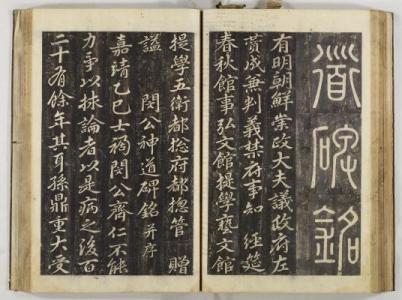 道碑銘
有明朝鮮崇政大夫議政府左
贊成兼判義禁府事知 經筵
春秋館事弘文館提學藝文館
提學五衛都摠府都摠管 贈
諡 閔公神道碑銘 并序
嘉靖乙巳士禍閔公齊仁不能
力爭以捄論者以是病之後百
二十有餘年其耳孫鼎重大受